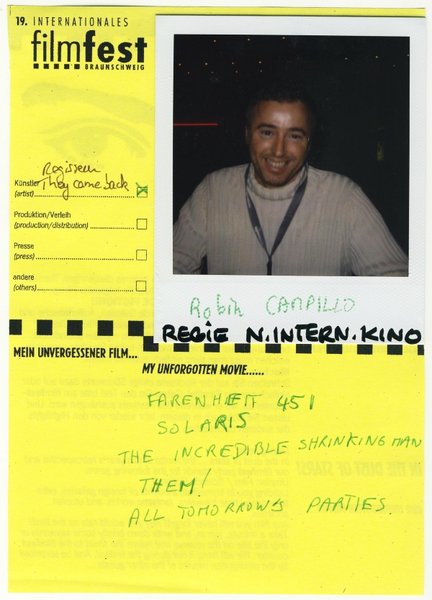 19. INTERNATIONALES
filmfest
BRAUNSCHWEIG
Regisseur
They come back
Künstler
(artist)
Produktion/Verleih
(production/distribution)
Presse
(press)
andere
(others)
Robin CAMPILLO
REGIE N.INTERN.KINO
MEIN UNVERGESSENER FILM...
MY UNFORGOTTEN MOVIE......
FARENHEIT 451
SOLARIS
THE INCREDIBLE SHRINKING MAN
THEM!
ALL TOMORROWS PARTIES